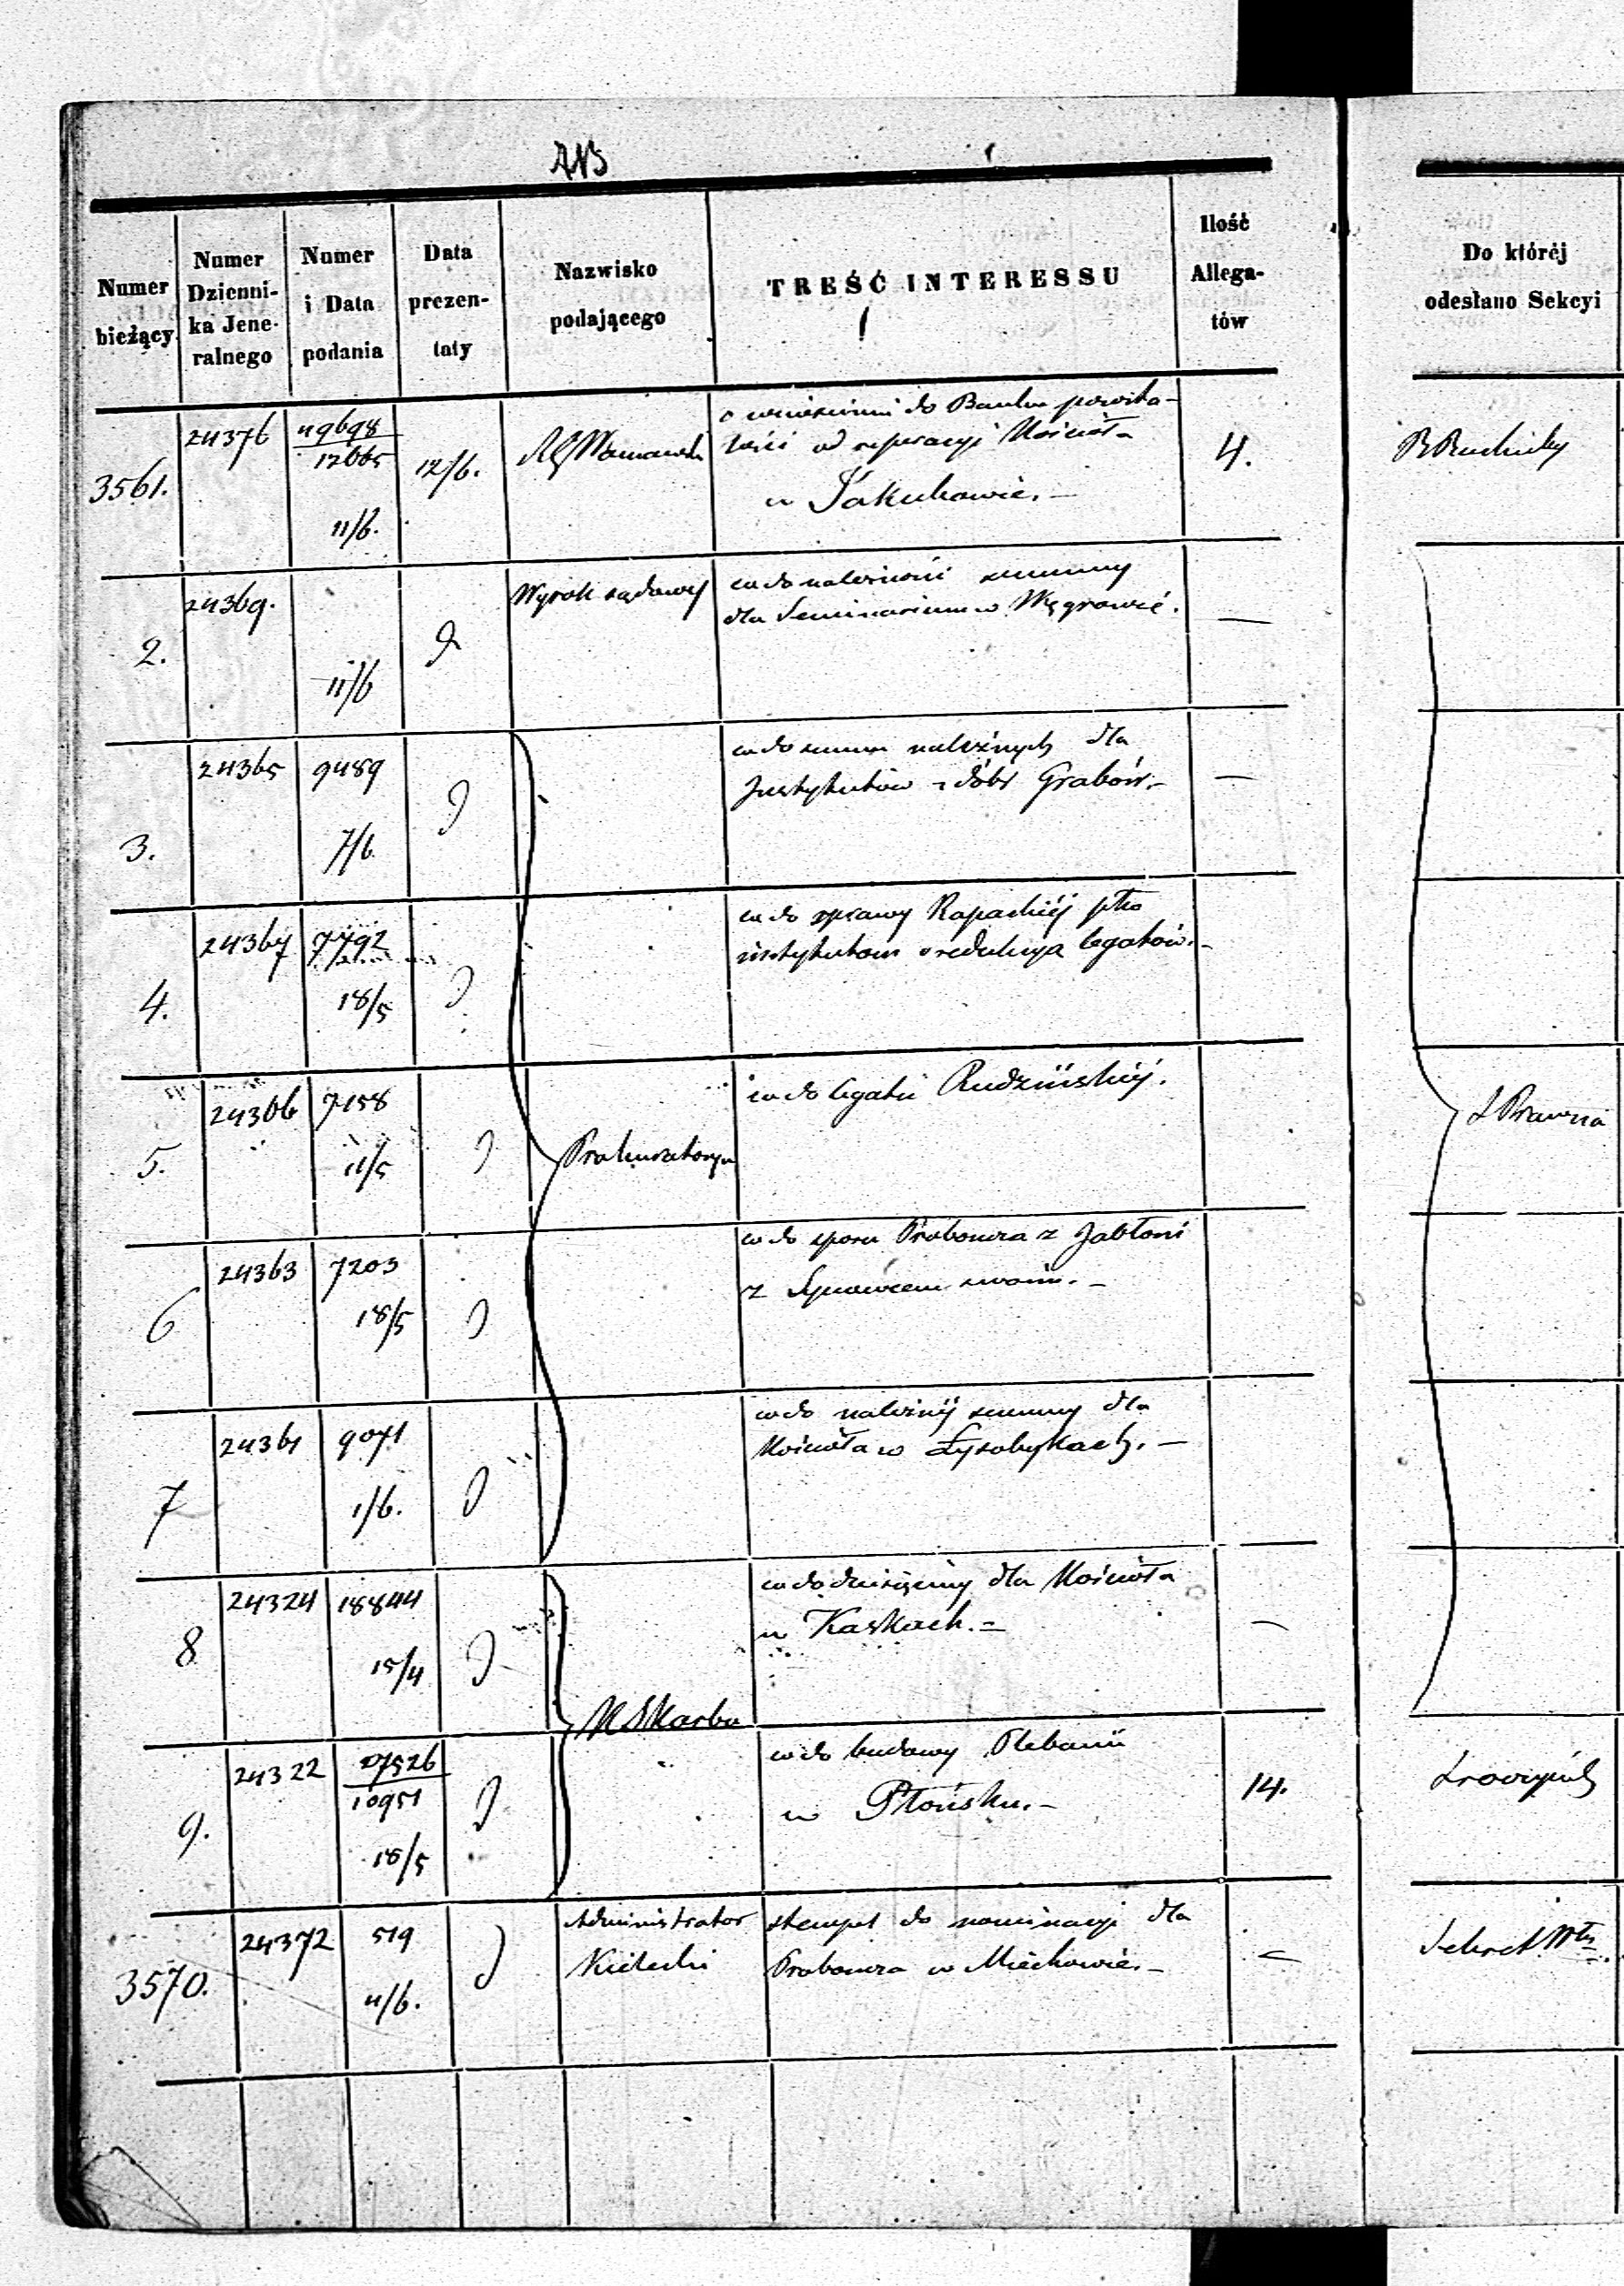 Numer
bieżący
Numer
Dzienni-
ka Jene-
ralnego
Numer
i Data
podania
Data
prezen-
taty
Nazwisko
podającego
TREŚĆ INTERESSU
Ilość
Allega-
tów
Do któréj
odesłano Sekcyi
3561.
24376
49698
12665
11/6.
12/6.
do Banku
od reperacyi Kościoła
w Jakubowie.
4.
2.
24369.
11/6
Wyrok sądowy
co do należności summy
dla Seminarium w Węgrowie.
—
3.
24365
9489
7/6
co do summ należnych dla
Instytutów z dóbr Grabów.
—
4.
24364
7792
18/5
co do sprawy Rapackiéj pko
instytutom o redukcyą legatów.
5.
24366
7158
11/5
Prokuratorya
co do legatu Rudzińskiéj.
S Prawna
6
24363
7203
18/5
co do sporu Proboszcza z Jabłoni
z swoim.
7
24361
9071
1/6.
co do należnéj summy dla
Kościoła w Łysobykach.
8
24324
18844
15/4
K S Skarbu
co do dziesięciny dla Kościoła
w Kaskach.
—
9.
24322
27526
10951
18/5
co do budowy Plebanii
w Płońsku.
14.
3570.
24372
519
11/6.
Administrator
Kielecki
stempel do nominacyi dla
Proboszcza w Miechowie.
—